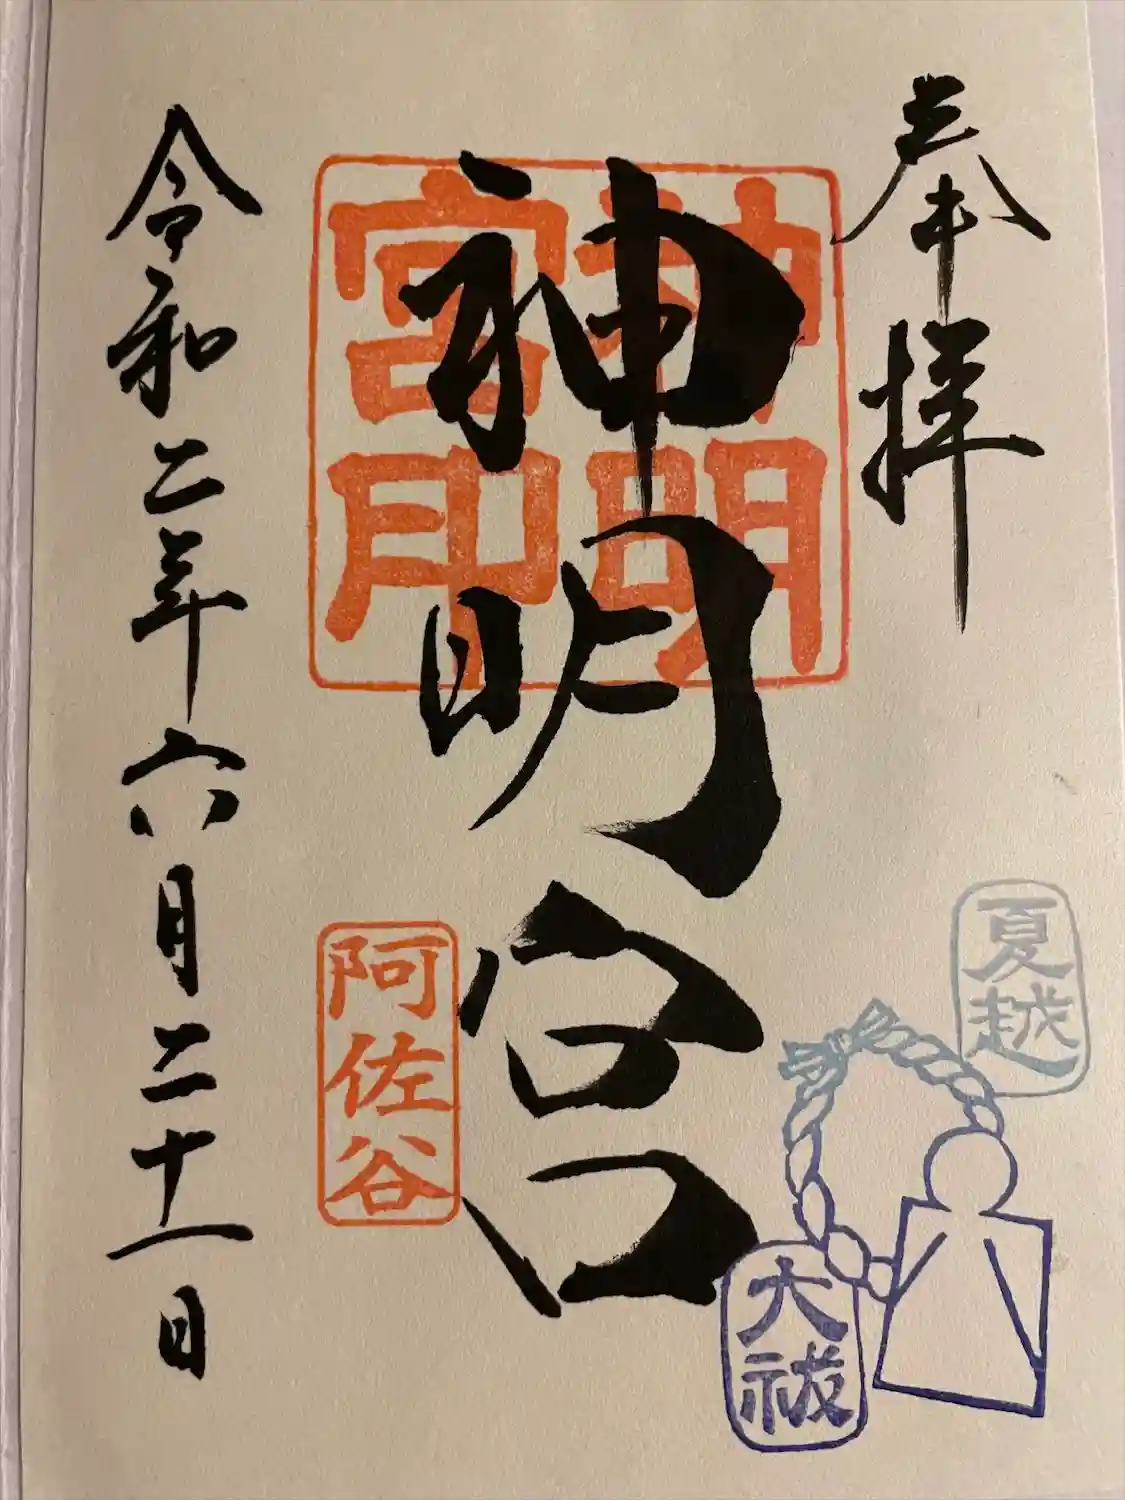 奉拝
夏越
大祓
神明宮
神明宮印
阿佐谷
令和二年六月二十一日